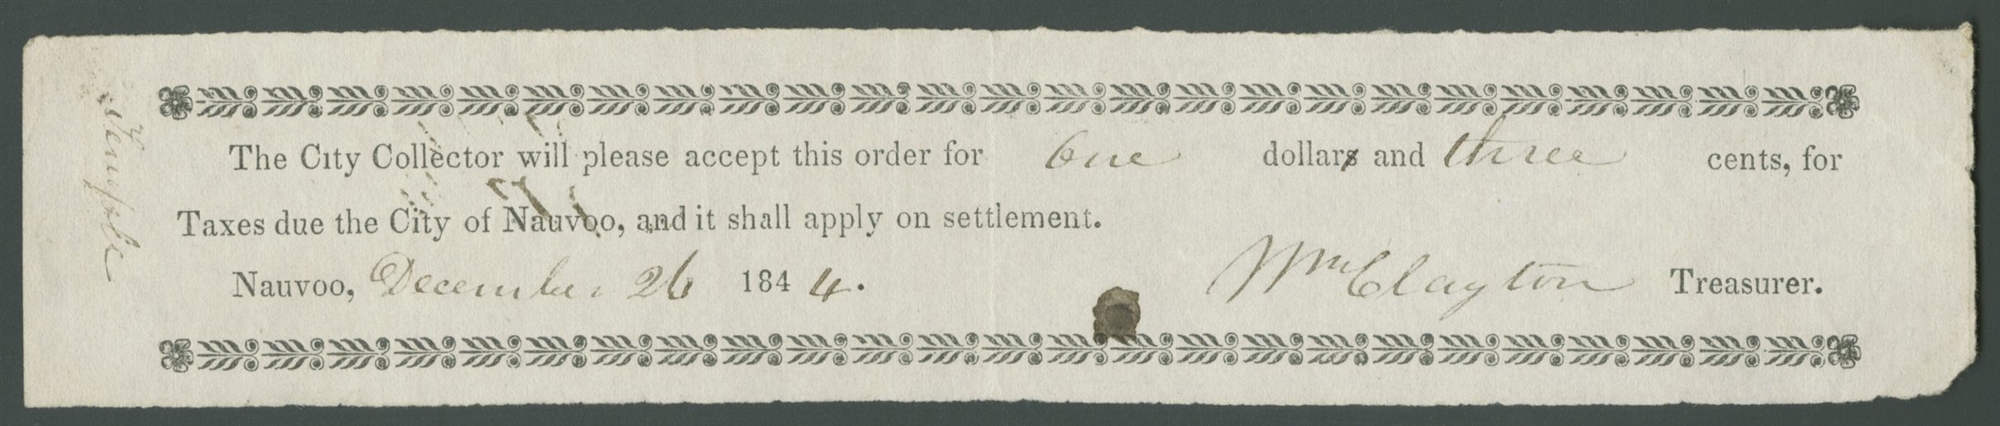 Temple
The City Collector will please accept this order for One dollars and three cents, for
Taxes due the City of Nauvoo, and it shall apply on settlement.
Nauvoo, December 26 1844. Wm Clayton Treasurer.